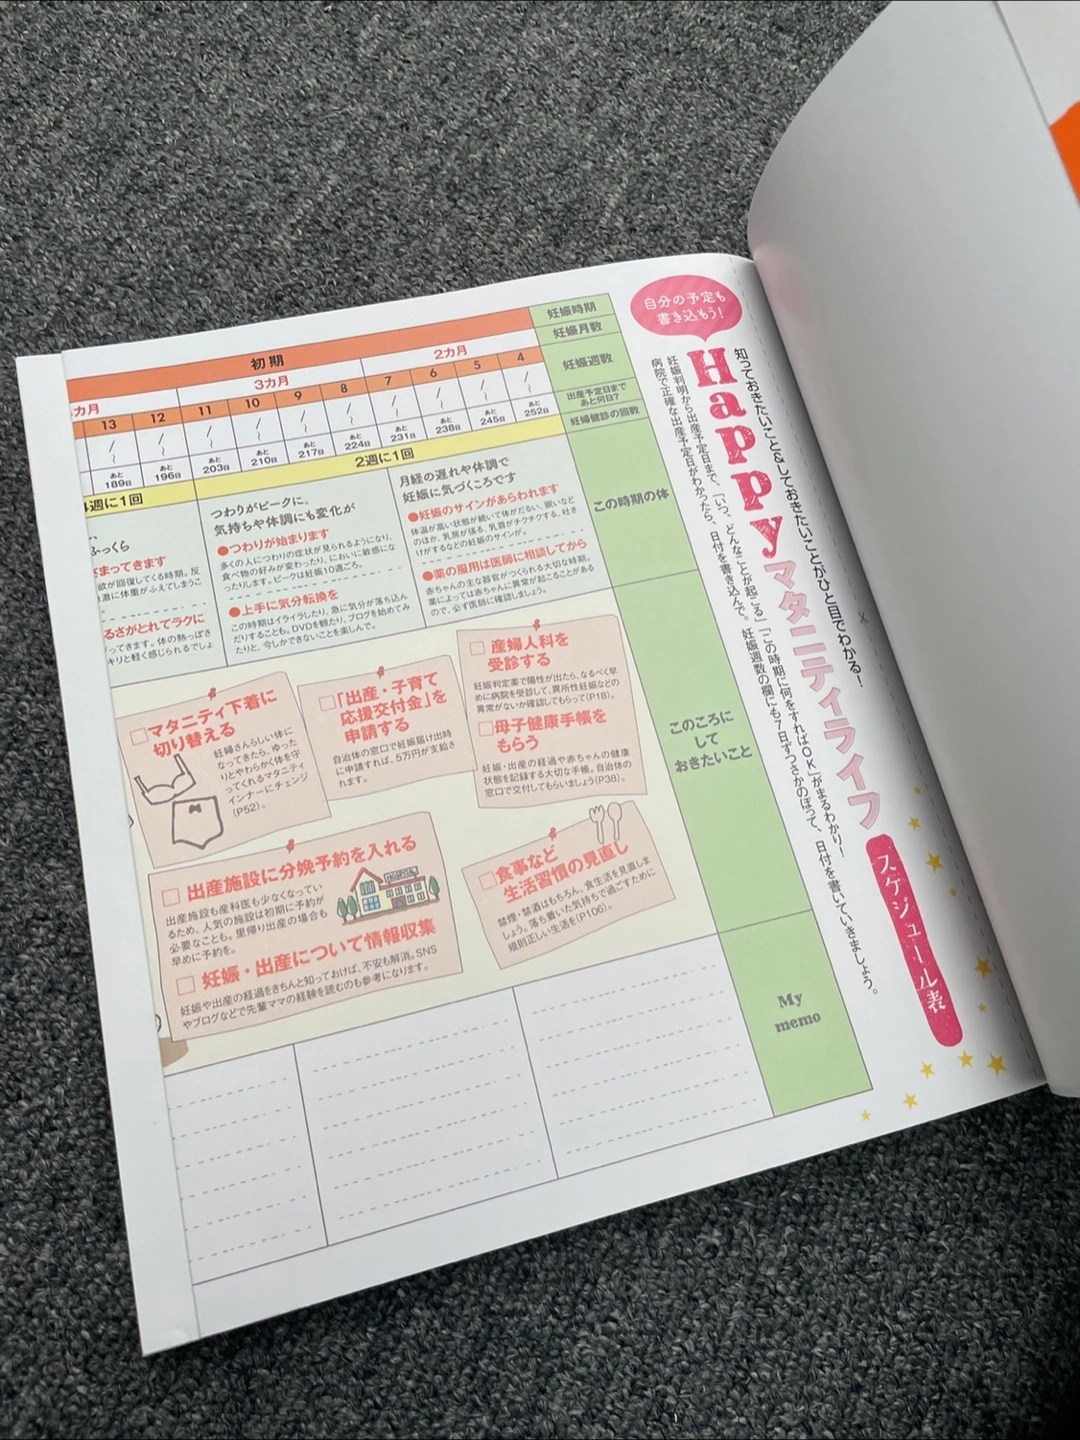 自分の予定も
書き込もう!
知っておきたいこと&しておきたいことがひと目でわかる!
Happyマタニティライフ
スケジュール表
妊娠判明から出産予定日まで、「いつ、どんなことが起こる」「この時期に何をすればOK」がまるわかり!
病院で正確な出産予定日がわかったら、日付を書き込んで。妊娠週数の欄にも7日ずつさかのぼって、日付を書いていきましょう。
妊娠時期
初期
妊娠月数
2カ月
3カ月
カ月
妊娠週数
4
5
6
7
8
9
10
11
12
13
出産予定日まで
あと何日?
あと
252日
あと
245日
あと
238日
あと
231日
あと
224日
あと
217日
あと
210日
あと
203日
あと
196日
あと
189日
妊婦健診の回数
2週に1回
週に1回
この時期の体
月経の遅れや体調で
妊娠に気づくころです
●妊娠のサインがあらわれます
体温が高い状態が続いて体がだるい、眠いなど
のほか、乳房が張る、乳首がチクチクする、吐き
けがするなどの妊娠のサインが。
●薬の服用は医師に相談してから
赤ちゃんの主な器官がつくられる大切な時期。
薬によっては赤ちゃんに異常が起こることがある
ので、必ず医師に確認しましょう。
つわりがピークに。
気持ちや体調にも変化が
●つわりが始まります
多くの人につわりの症状が見られるようになり、
食べ物の好みが変わったり、においに敏感にな
ったりします。ピークは妊娠10週ごろ。
●上手に気分転換を
この時期はイライラしたり、急に気分が落ち込ん
だりすることも。DVDを観たり、ブログを始めてみ
たりと、今しかできないことを楽しんで。
ふっくら
まってきます
欲が回復してくる時期。反
激に体重がふえてしまうこ
るさがとれてラクに
てきます。体の熱っぽさ
キリと軽く感じられるでしょ
このころに
して
おきたいこと
□産婦人科を
受診する
妊娠判定薬で陽性が出たら、なるべく早
めに病院を受診して、異所性妊娠などの
異常がないか確認してもらって(P18)。
□母子健康手帳を
もらう
妊娠・出産の経過や赤ちゃんの健康
状態を記録する大切な手帳。自治体の
窓口で交付してもらいましょう(P38)。
□「出産・子育て
応援交付金」を
申請する
自治体の窓口で妊娠届け出時
に申請すれば、5万円が支給さ
れます。
□マタニティ下着に
切り替える
妊婦さんらしい体に
なってきたら、ゆった
りとやわらかく体を守
ってくれるマタニティ
インナーにチェンジ
(P52)。
□食事など
生活習慣の見直し
禁煙・禁酒はもちろん、食生活を見直しま
しょう。落ち着いた気持ちで過ごすために
規則正しい生活を(P106)。
□出産施設に分娩予約を入れる
出産施設も産科医も少なくなってい
るため、人気の施設は初期に予約が
必要なことも。里帰り出産の場合も
早めに予約を。
HOSPITAL
□妊娠・出産について情報収集
妊娠や出産の経過をきちんと知っておけば、不安も解消。SNS
やブログなどで先輩ママの経験を読むのも参考になります。
My
memo